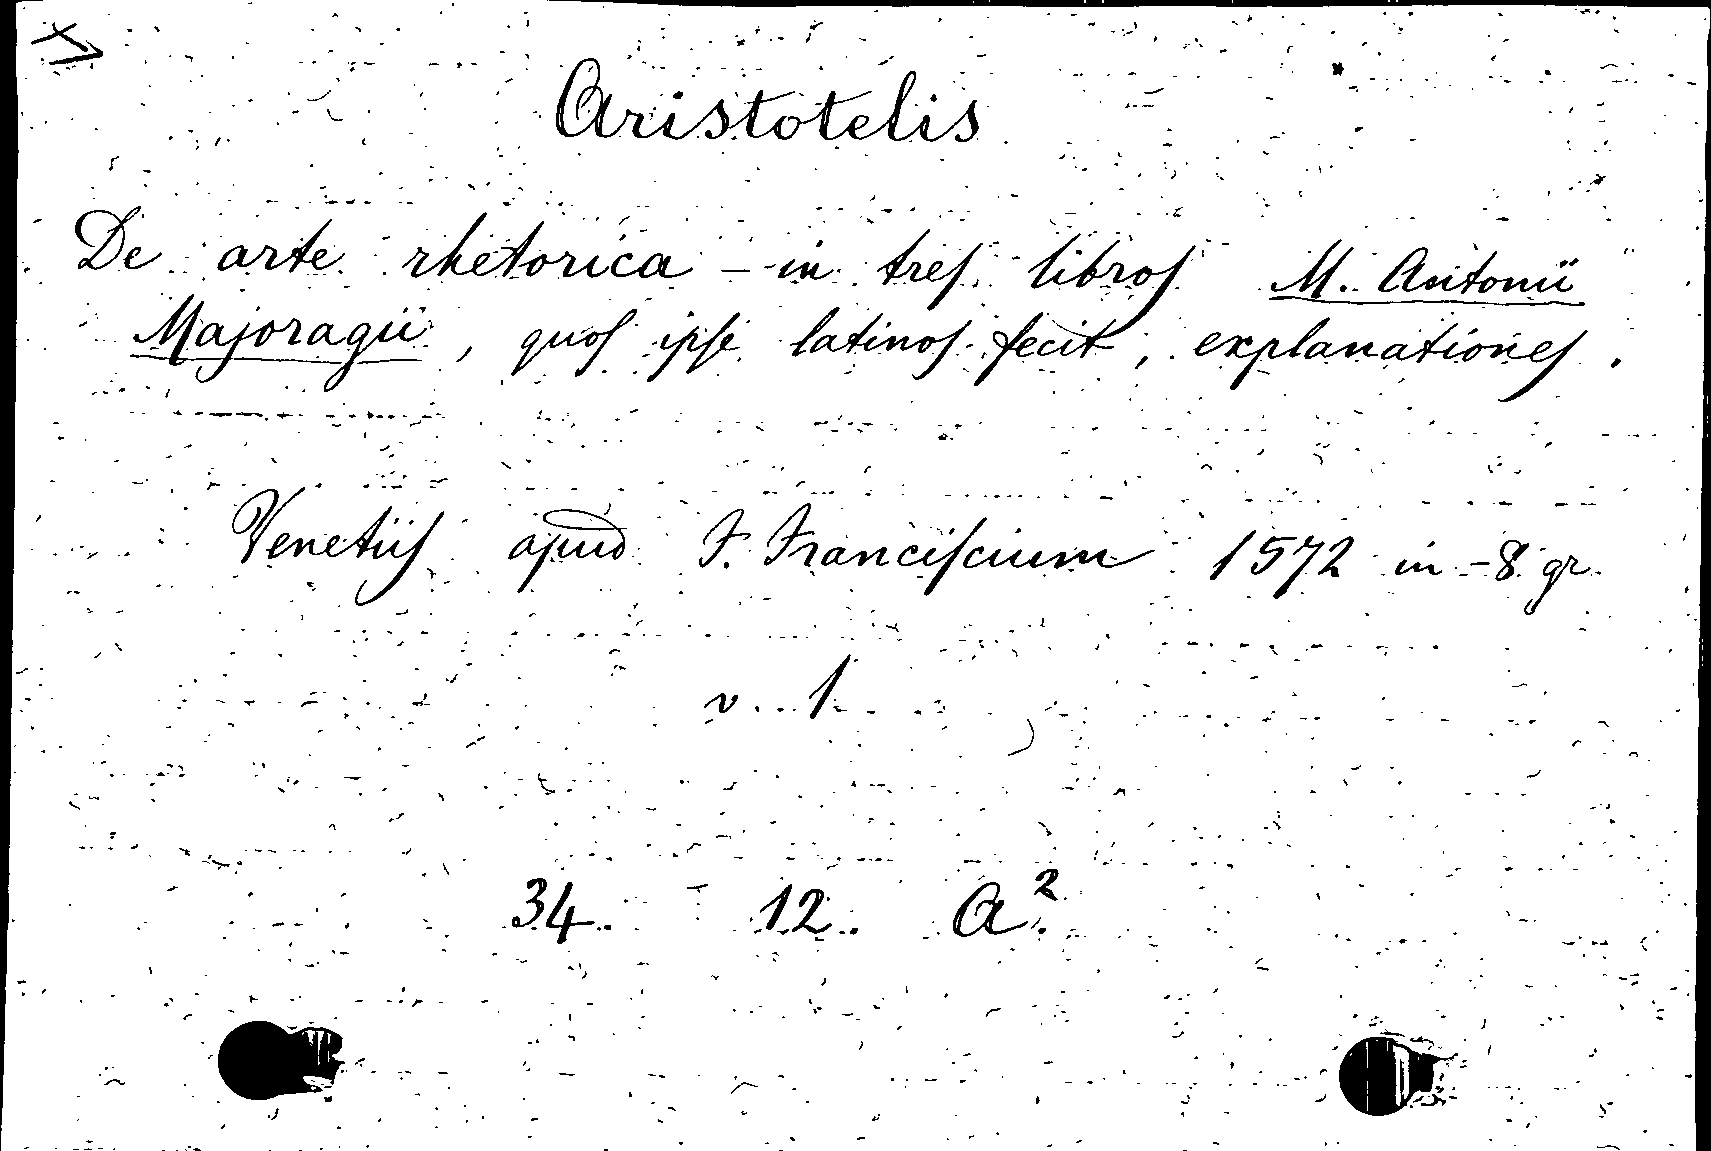 Aristotelis
De arte rhetorica - in tres libros M. Antonii
Majoragii, quos ipse latinos fecit, explanationes.
Venetiis apud F. Franciscium 1572 in-8 gr.
v. 1
34. 12. A².